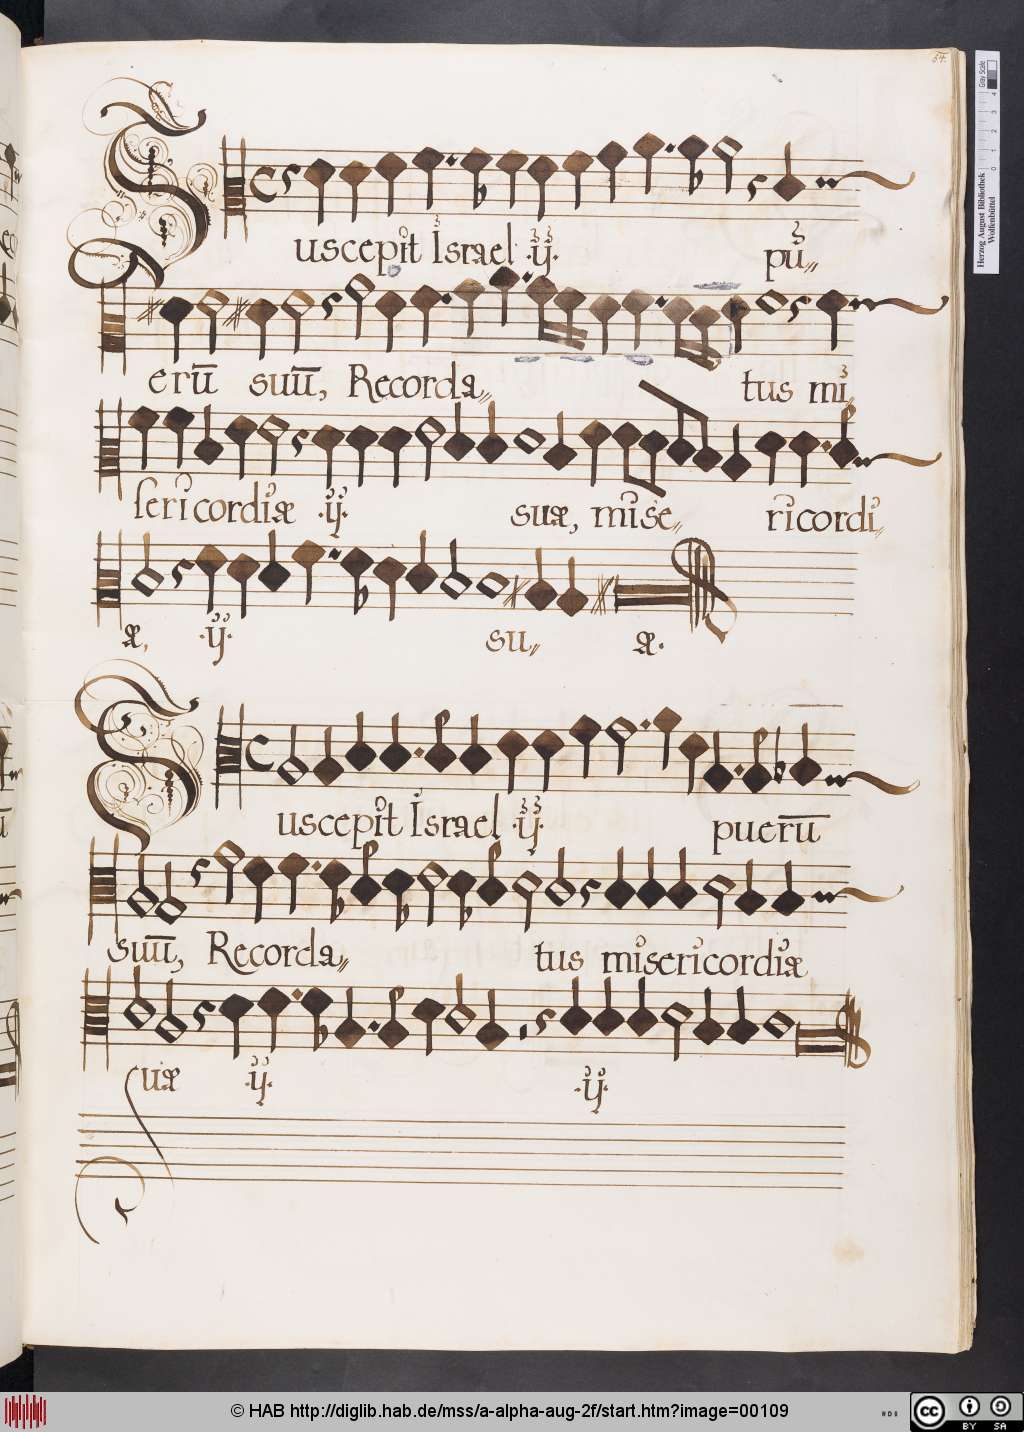 54.
Suscepit Israel .ij. pu„
erū suū, Recorda„ tus mi„
sericordiæ .ij. suæ, mise„ ricordi„
æ, .ij. su„ æ.
Suscepit Israel .ij. puerū
suū, Recorda„ tus misericordiæ
suæ .ij. .ij.
Herzog August Bibliothek
Wolfenbüttel
0 1 2 3 4
Gray Scale
© HAB http://diglib.hab.de/mss/a-alpha-aug-2f/start.htm?image=00109
cc BY SA